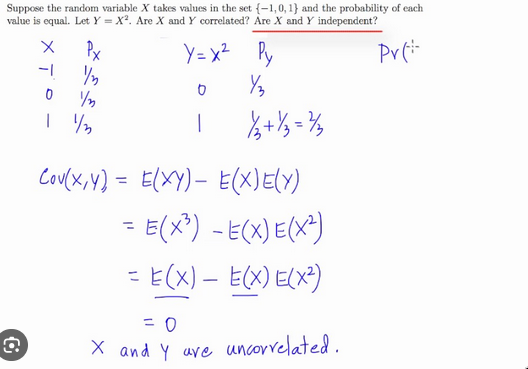 Suppose the random variable X takes values in the set {−1, 0, 1} and the probability of each
value is equal. Let Y = X². Are X and Y correlated? Are X and Y independent?
X Px Y = X² Py Pr(
-1 1/3 0 1/3
0 1/3
1 1/3 1 1/3 + 1/3 = 2/3
Cov(X,Y) = E(XY) − E(X)E(Y)
= E(X³) − E(X)E(X²)
= E(X) − E(X)E(X²)
= 0
X and Y are uncorrelated.